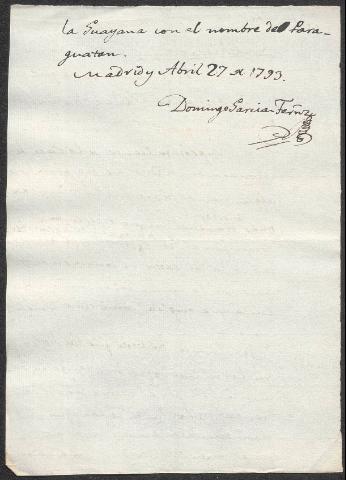 la Guayana con el nombre del Para-
guatan.
Madrid y Abril 27 de 1793.
Domingo Garcia Fern.z